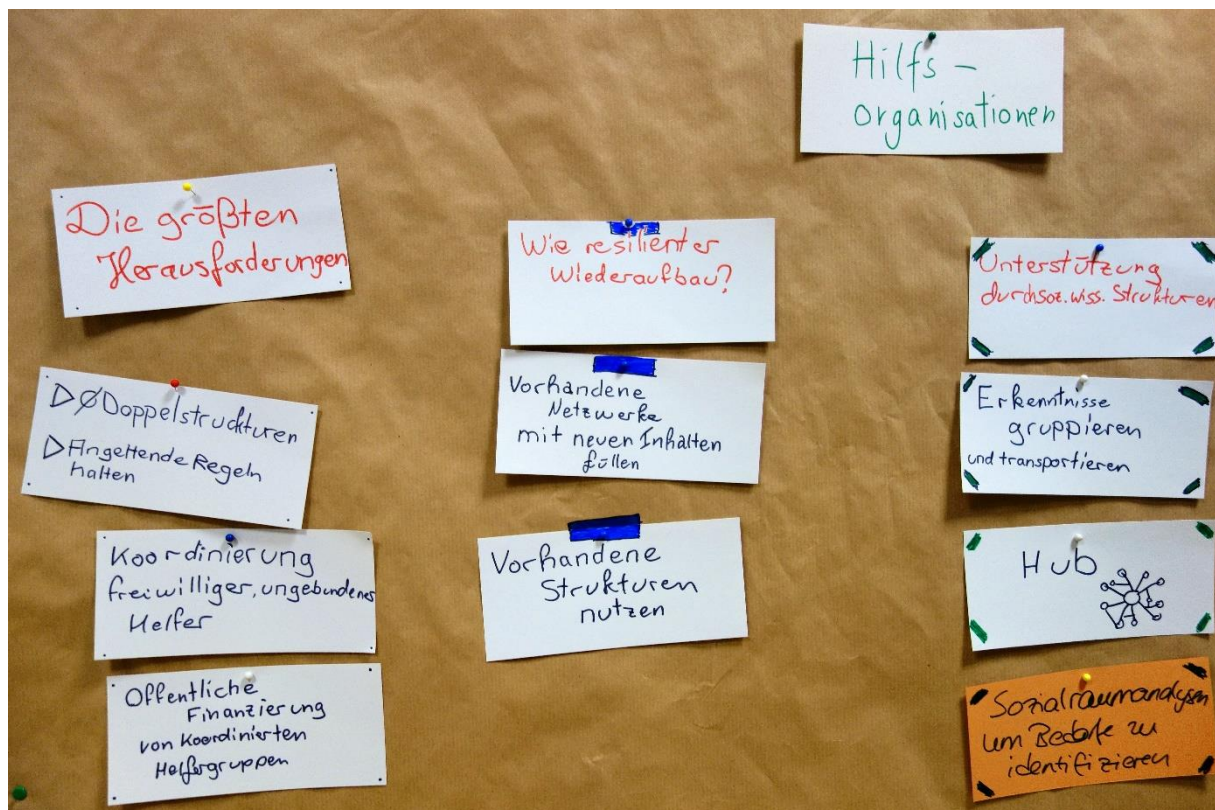 Hilfs-
organisationen
Die größten
Herausforderungen
▷ØDoppelstrukturen
▷An geltende Regeln
halten
Koordinierung
freiwilliger, ungebundener
Helfer
Öffentliche
Finanzierung
von Koordinierten
Helfergruppen
Wie resilienter
Wiederaufbau?
Vorhandene
Netzwerke
mit neuen Inhalten
füllen
Vorhandene
Strukturen
nutzen
Unterstützung
durch soz. wiss. Strukturen
Erkenntnisse
gruppieren
und transportieren
Hub
Sozialraumanalysen
um Bedarfe zu
identifizieren